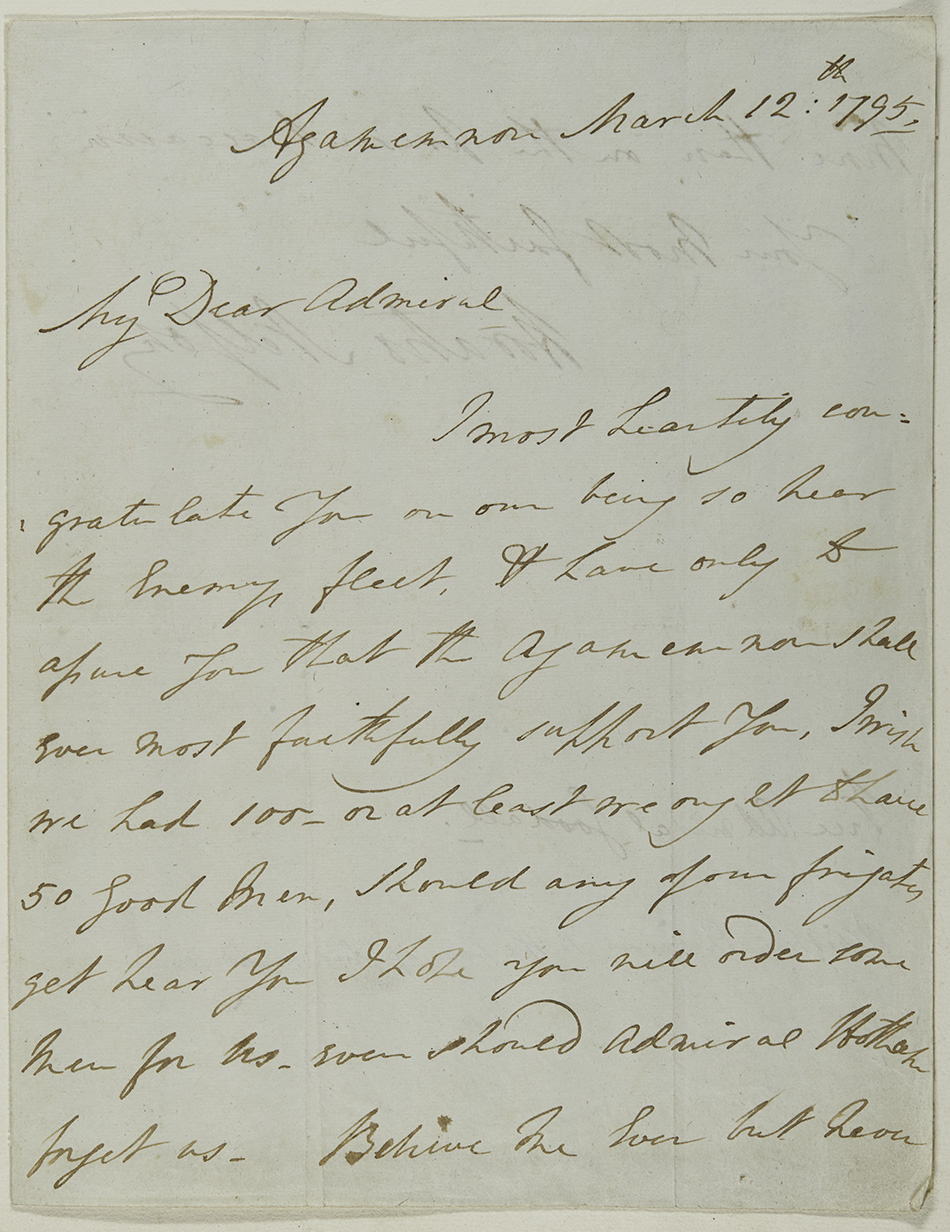 Agamemnon March 12:th 1795,
My Dear Admiral
I most heartily con=
gratulate You on our being so near
the Enemys fleet, & have only to
assure You that the Agamemnon shall
ever most faithfully support You, I wish
we had 100 - or at least we ought to have
50 good Men, should any of our frigates
get near You I hope you will order some
Men for us - even should Admiral Hotham
forget us -   Believe Me Ever but never